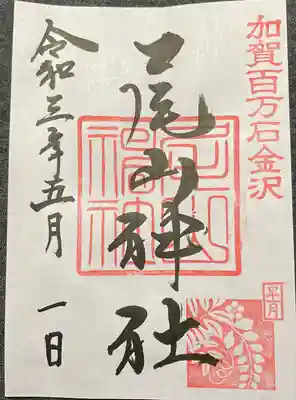 加賀百万石金沢
尾山神社
尾山神社
皐月
令和三年五月
一日